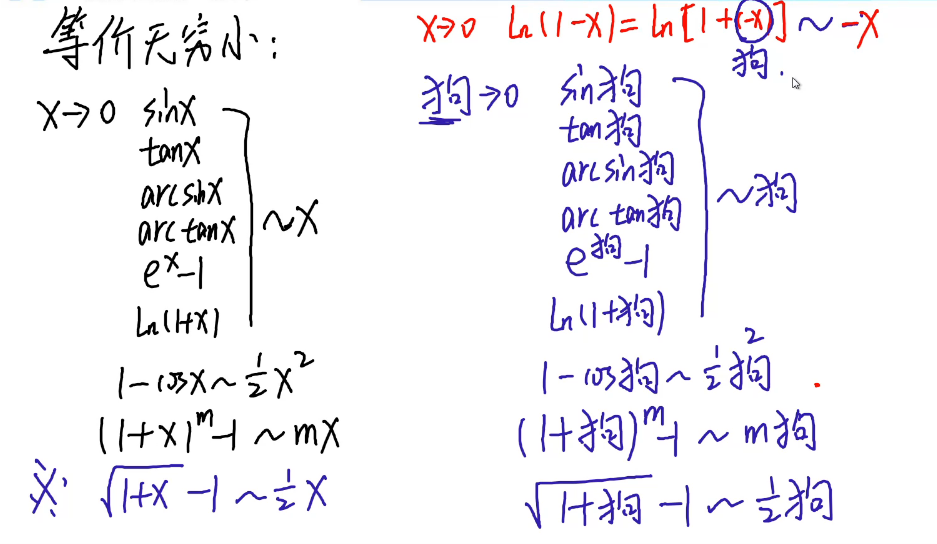 等价无穷小:
x→0 sinx
tanx
arcsinx
arctanx
e^x-1
ln(1+x)
~x
1-cosx~1/2x^2
(1+x)^m-1~mx
※ √(1+x)-1~1/2x
x→0 ln(1-x)=ln[1+(-x)]~-x
狗.
狗→0 sin狗
tan狗
arcsin狗
arctan狗
e^狗-1
ln(1+狗)
~狗
1-cos狗~1/2狗^2
(1+狗)^m-1~m狗
√(1+狗)-1~1/2狗